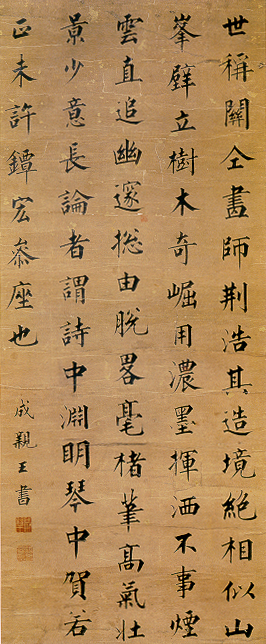 世稱關仝畵師荆浩其造境絕相似山
峯壁立樹木奇崛用濃墨揮洒不事煙
雲直追幽邃捴由脫畧毫楮筆高氣壯
景少意長論者謂詩中淵明琴中賀若
正未許鐔宏叅座也
成親王書